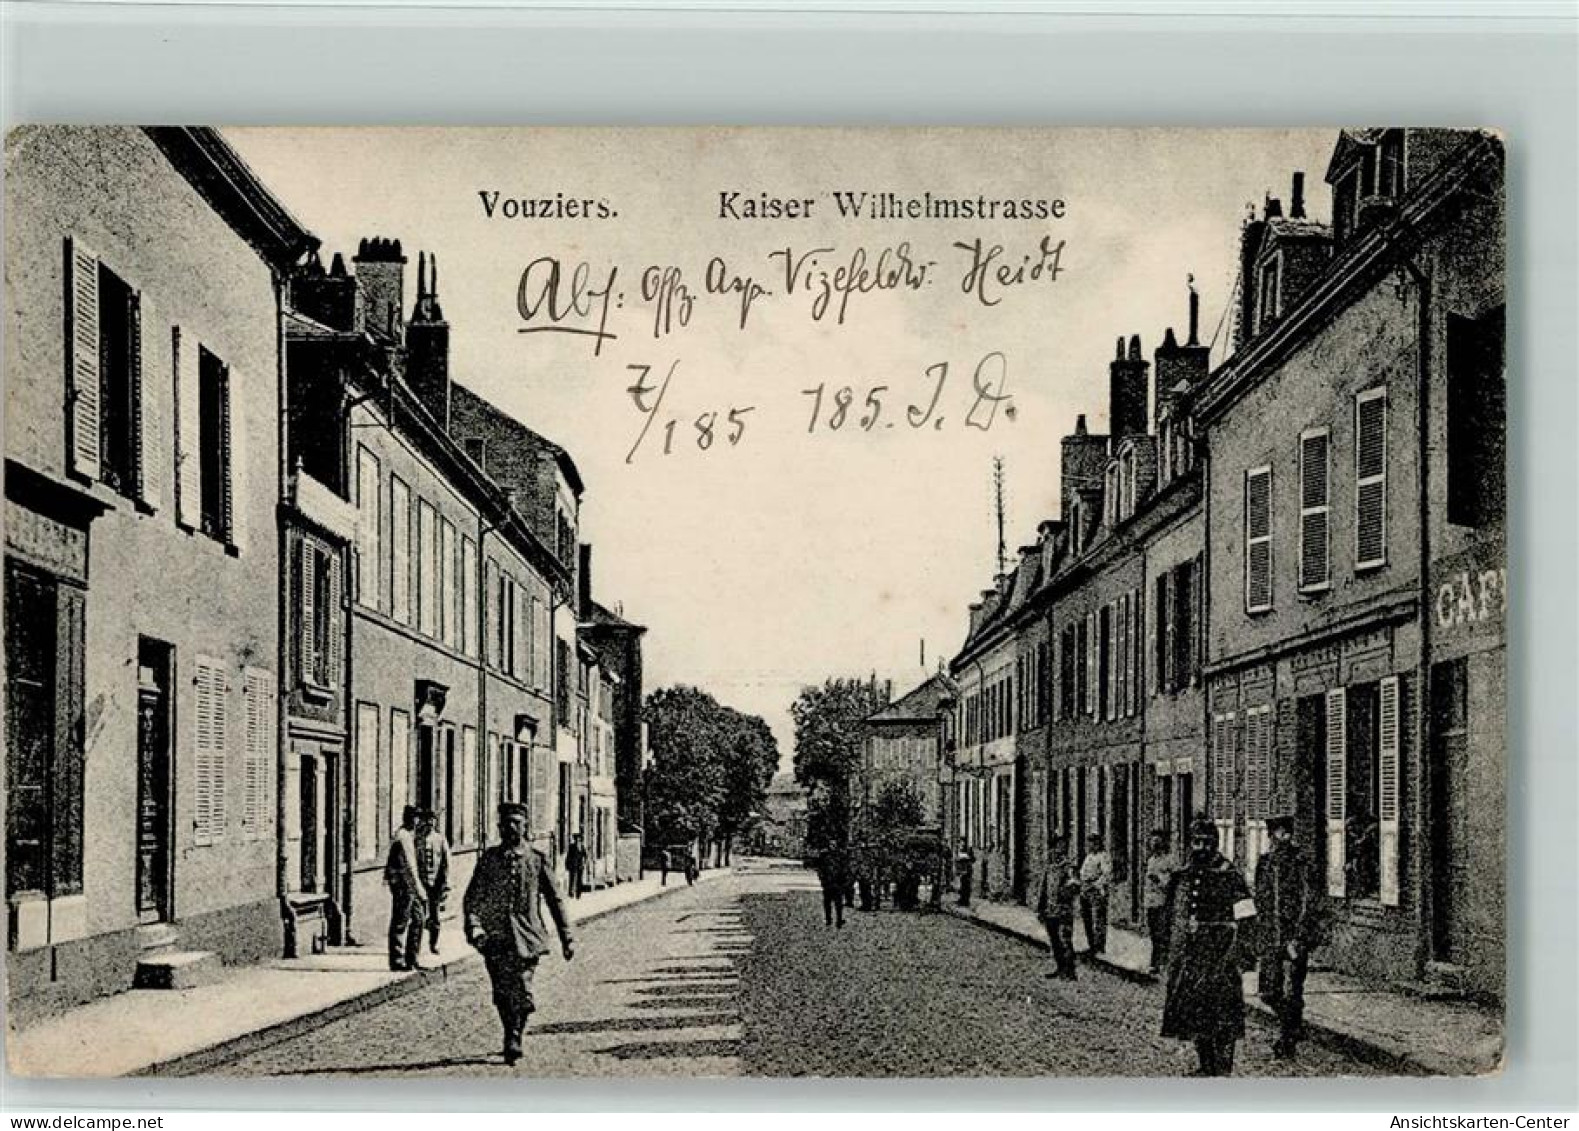 Vouziers. Kaiser Wilhelmstrasse
Abs: Offz. Asp. Vizefeldw. Heidt
7/185 185. J. D.
CAF
www.delcampe.net
Ansichtskarten-Center